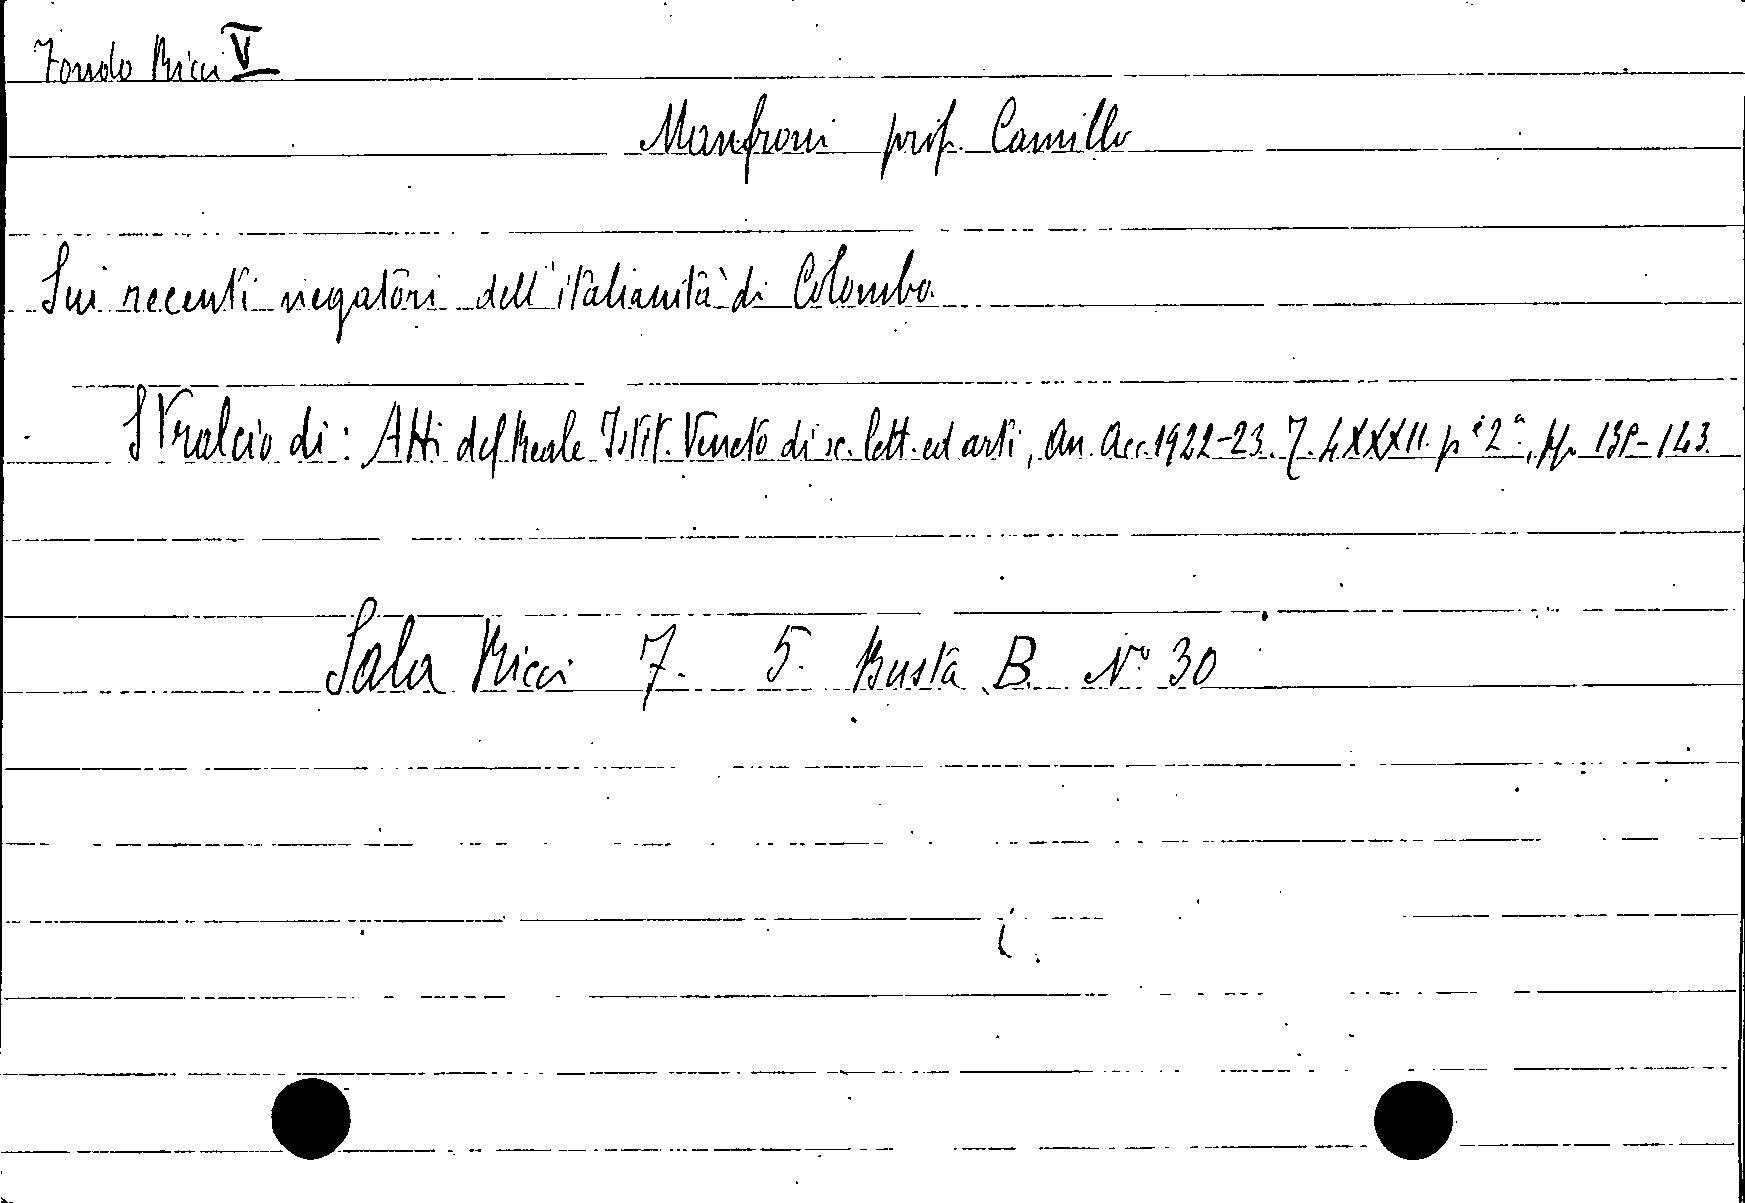 Fondo Ricci V
Manfroni prof. Camillo
Sui recenti negatori dell'italianità di Colombo.
Stralcio di: Atti del Reale Istit. Veneto di sc. lett. ed arti, An. Acc. 1922-23. T. LXXXII. p.te 2a, pp. 139-143.
Sala Ricci 7. 5. Busta B. N° 30